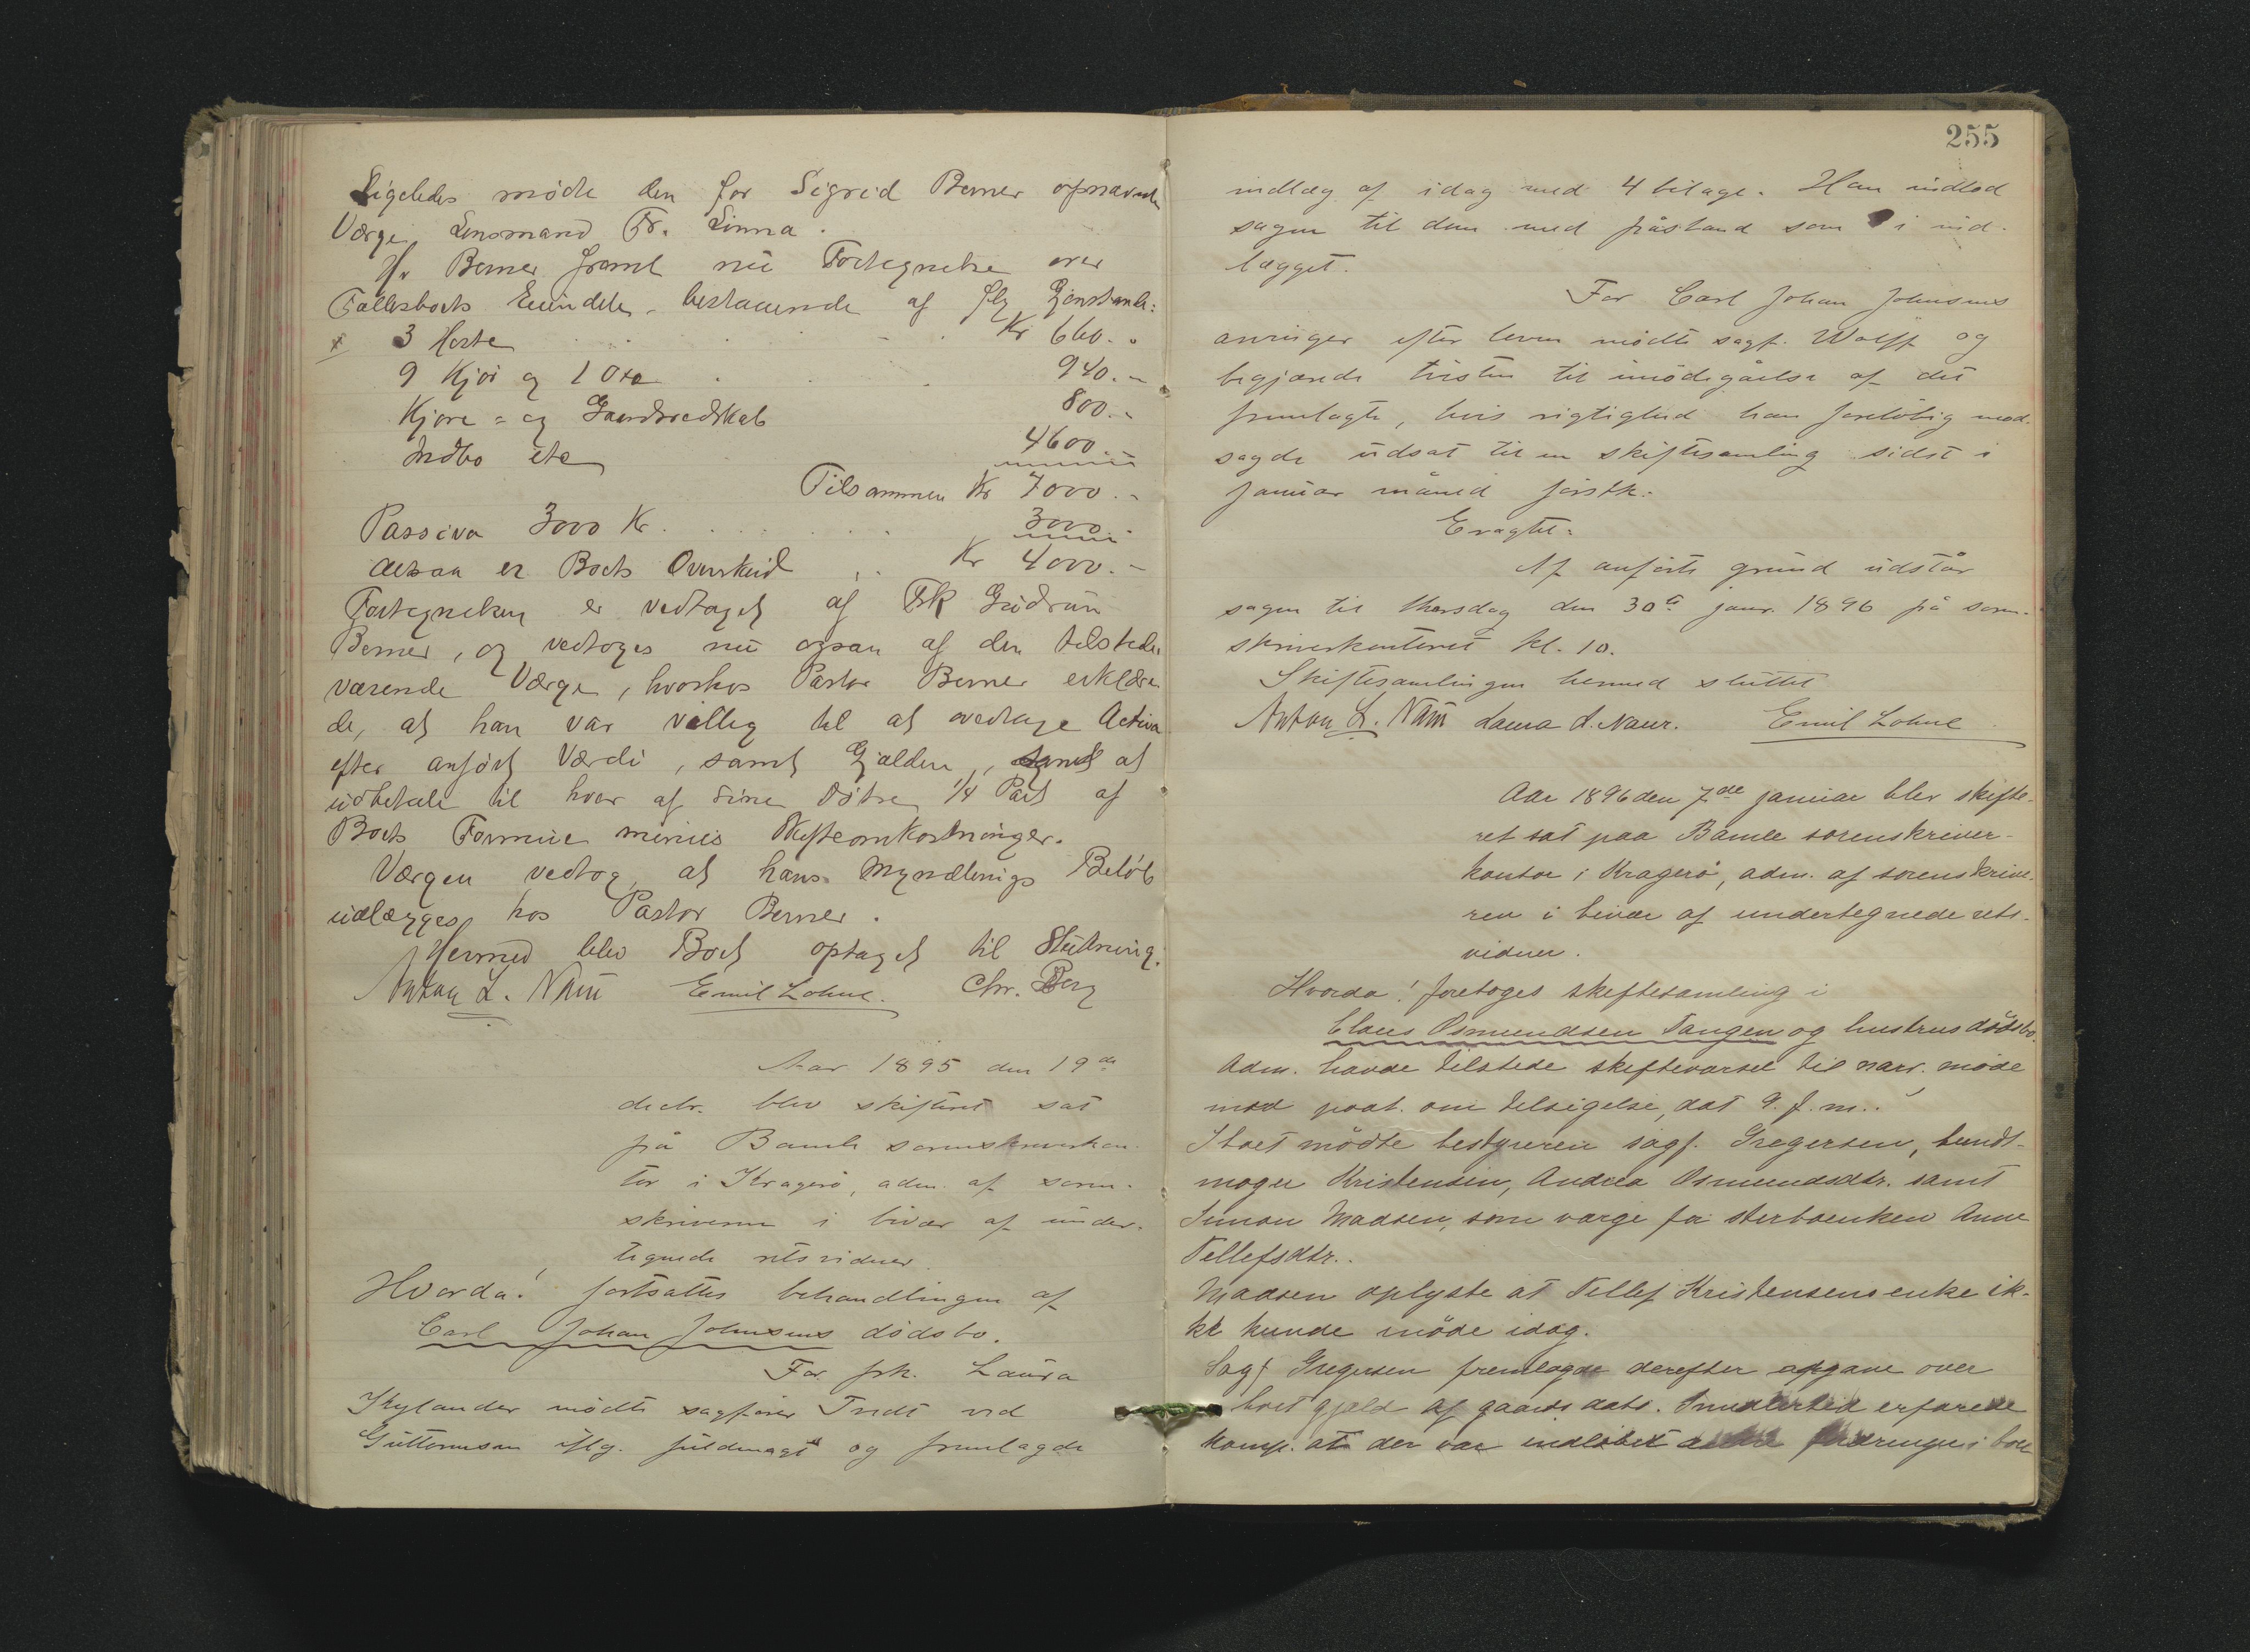 Ligeledes mødte den for Sigrid Berner opnævnte
Værge Lensmand Fr. Linna.
Hr Berner freml nu Fortegnelse over
Fællesboets Eiendele bestaaende af flg Gjenstande:
3 Heste Kr 660.-
9 Kjør og 1 Oxe 940.-
Kjøre- og Gaardsredskab 800.-
Indbo etc 4600.-
Tilsammen Kr 7000.-
Passiva 3000 Kr. 3000.-
altsaa er Boets Overskud Kr 4000.-
Fortegnelsen er vedtaget af Frk Gudrun
Berner, og vedtoges nu ogsaa af den tilstede-
værende Værge, hvorhos Pastor Berner erklære-
de, at han var villig til at overtage Activa
efter anført Værdi, samt Gjælden, samt at
udbetale til hver af sine Døtre 1/4 Part af
Boets Formue minus Skifteomkostninger.
Værgen vedtog, at hans Myndlings Beløb
udlægges hos Pastor Berner.
Hermed blev Boet optaget til Slutning.
Anton L. Næss Emil Lohne. Chr. Berg
Aar 1895 den 19de
decbr. blev skifteret sat
på Bamle sorenskriverkon-
tor i Kragerø, adm. af soren-
skriveren i bivær af under-
tegnede retsvidner.
Hvorda! fortsattes behandlingen af
Carl Johan Johnsens dødsbo.
For frk. Laura
Kylander mødte sagfører Tvedt ved
Guttormsen iflg. fuldmagt og fremlagde
255
indlæg af idag med 4 bilage. Han indlod
sagen til dom med påstand som i ind-
lægget.
For Carl Johan Johnsens
arvinger efter loven mødte sagf. Wolff og
begjærede tvisten til imødegåelse af det
fremlagte, hvis rigtighed han foreløbig mod-
sagde udsat til en skiftesamling sidst i
januar måned førstk.
Eragtet:
Af anførte grund udstår
sagen til thorsdag den 30te janr. 1896 på soren-
skriverkontoret kl. 10.
Skiftesamlingen hermed sluttet
Anton L. Næss Laura L. Emil Lohne
Aar 1896 den 7de januar blev skifte-
ret sat paa Bamle sorenskriver-
kontor i Kragerø, adm. af sorenskrive-
ren i bivær af undertegnede rets-
vidner.
Hvorda! foretoges skiftesamling i
Claus Osmundsen Tangen og hustrus dødsbo.
Adm. havde tilstede skiftevarsel til narv. møde
med paat. om tilsigelse, dat 9. f. m..
I boet mødte bestyreren sagf. Gregersen, bundt-
mager Kristensen, Andrea Osmundsdtr. samt
Simon Madsen, som værge for sterboenken Anne
Tellefsdtr..
Madsen oplyste at Tellef Kristensens enke ik-
ke kunde møde idag.
Sagf Gregersen fremlagde derefter opgave over
boets gjæld af gaars dato. Imidlertid erfarede
komp. at der var indløbet andre fordringer i boet